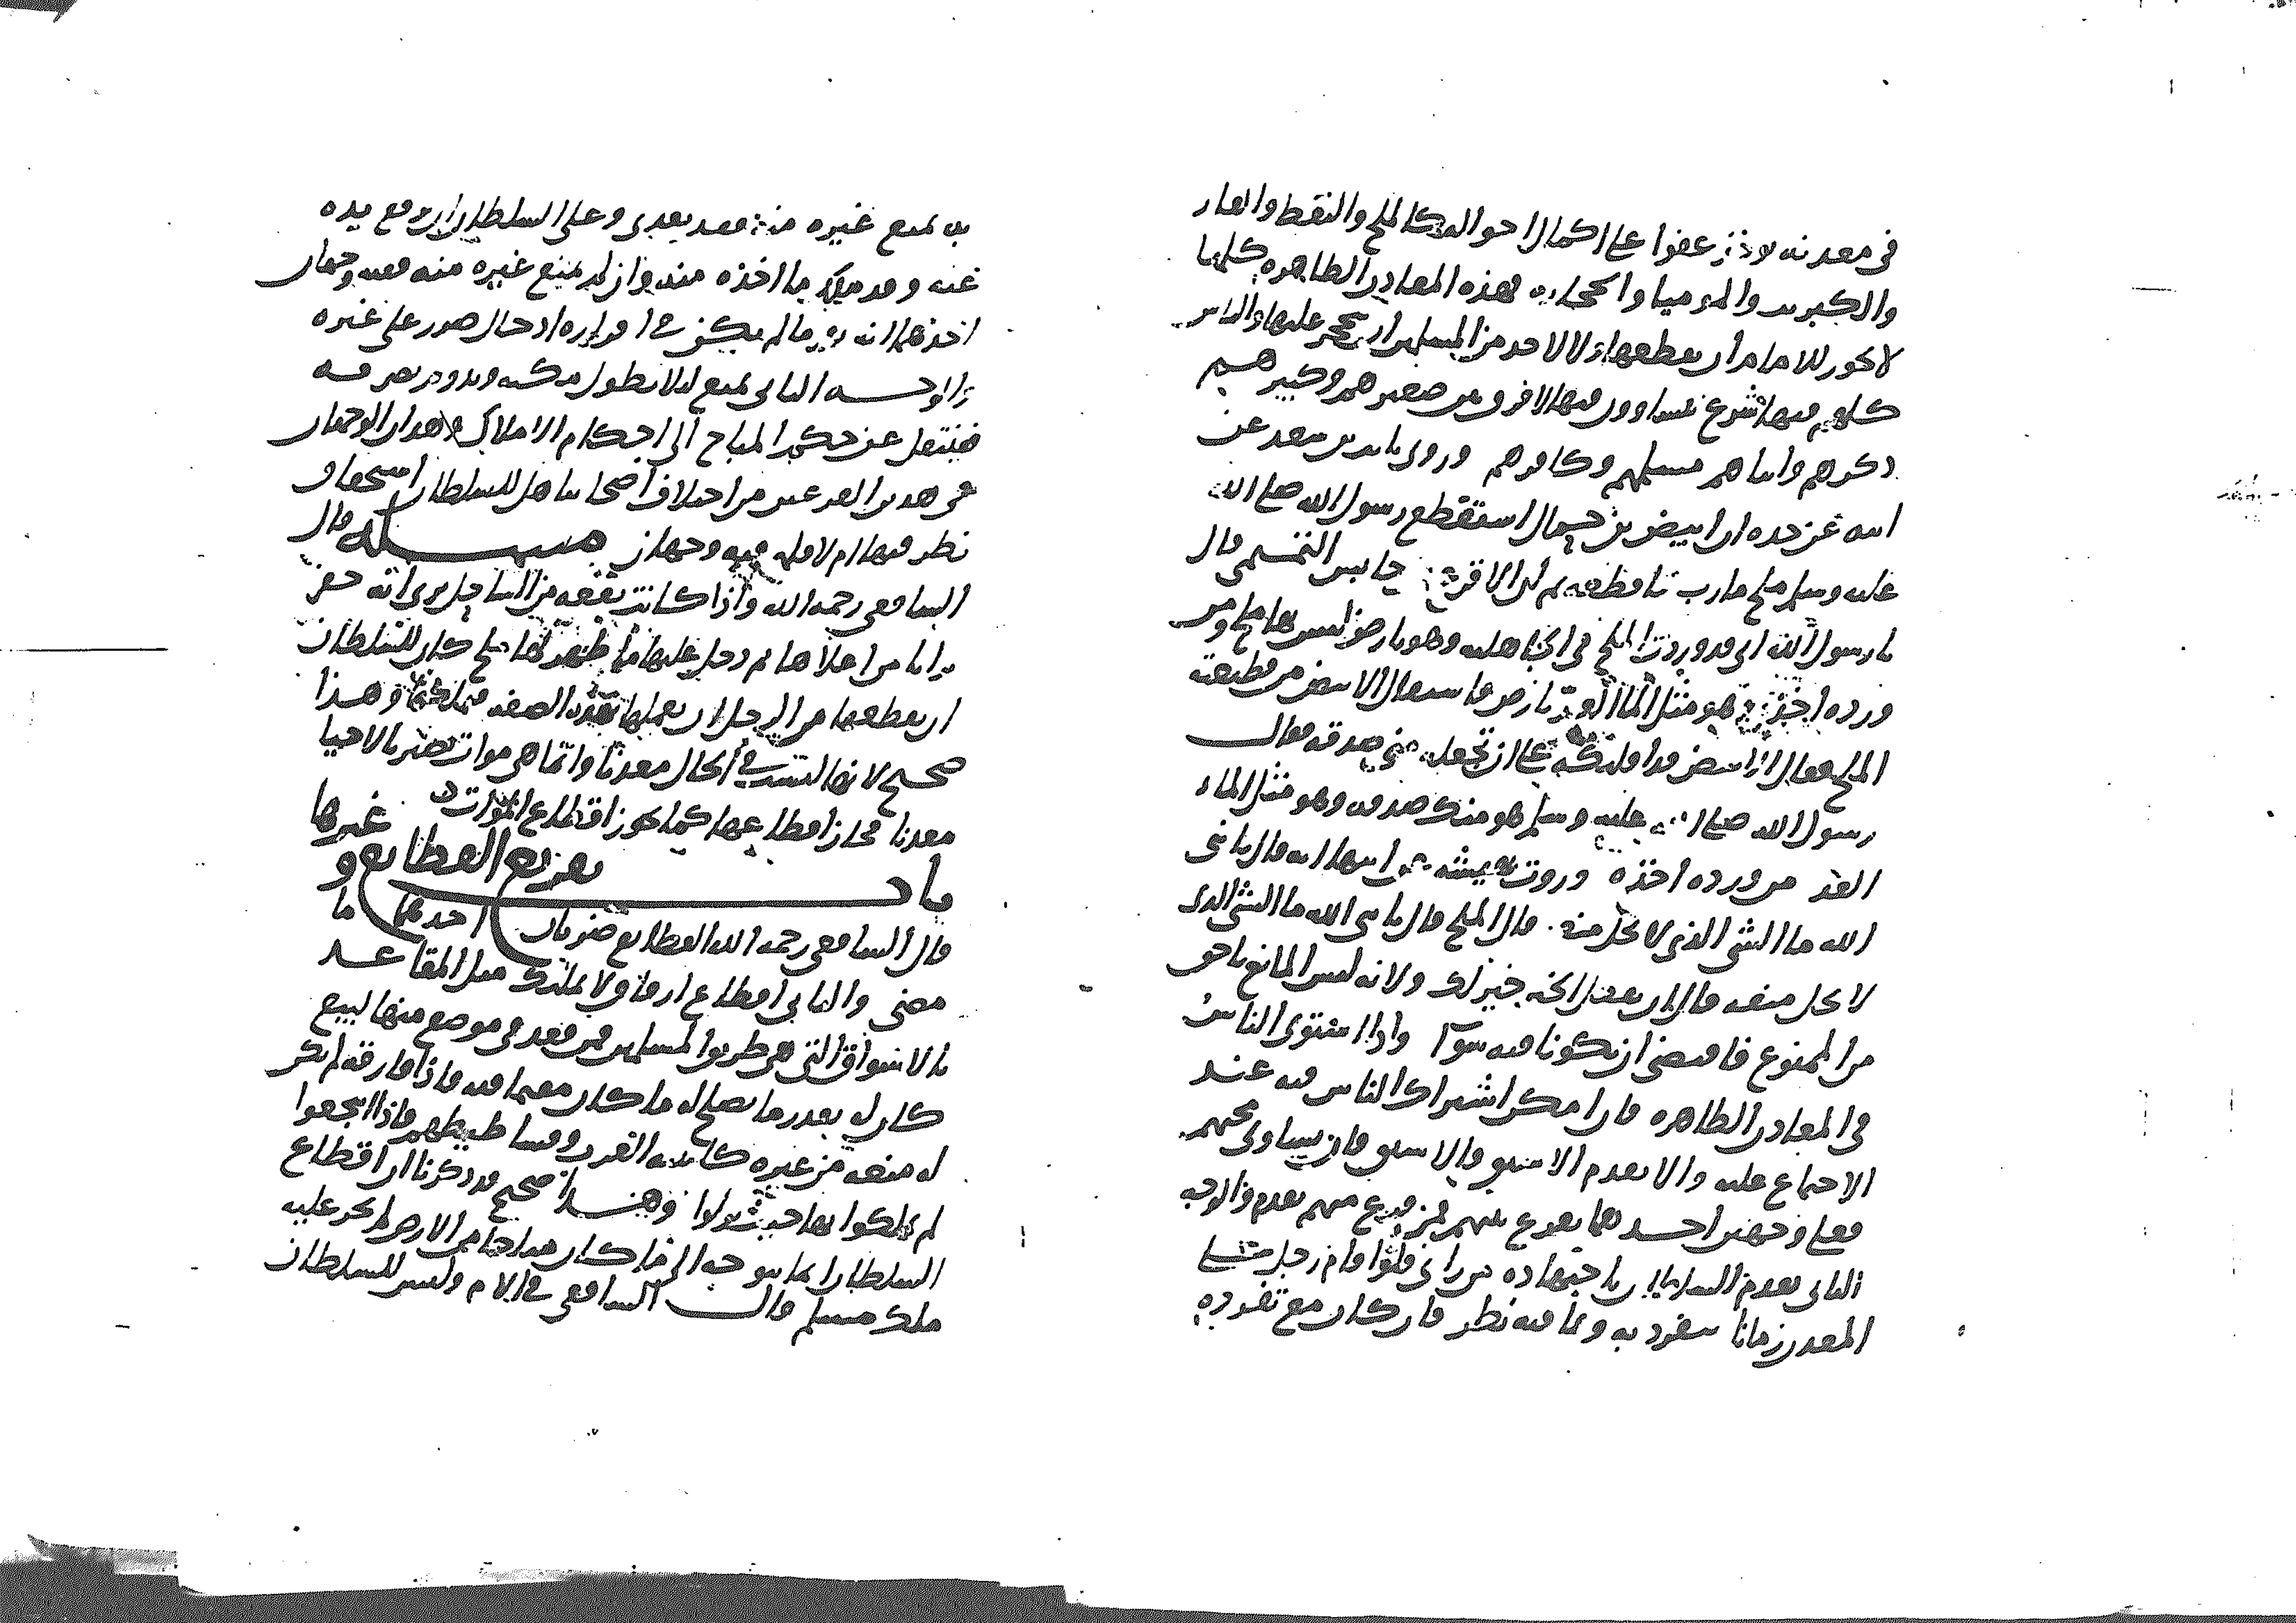 في معدنه يؤخذ عفوا على اكمل احواله كالملح والنفط والقار
والكبريت والموميا والحجارة فهذه المعادن الظاهره كلها
لا يجوز للامام أن يقطعها ولا لاحد من المسلمين ان يحجر عليها والناس
كلهم فيها شرع يتساوون فيها لا فرق بين صغيرهم وكبيرهم
ذكورهم واناثهم مسلمهم وكافرهم وروى ثابت بن سعد عن
ابيه عن جده ان ابيض بن حمال استقطع رسول الله صلى الله
عليه وسلم ملح مارب فاقطعه ثم ان الاقرع بن حابس التميمي قال
يا رسول الله اني قد وردت الملح في الجاهليه وهو بارض ليس بها ملح ومن
ورده اخذه وهو مثل الماء العد بارض فاستقال الابيض من قطيعته
الملح فقال الابيض قد اقلتكه على ان تجعله مني صدقه فقال
رسول الله صلى الله عليه وسلم هو منك صدقه وهو مثل الماء
العد من ورده اخذه وروت بهيسة عن ابيها انه قال يا نبي
الله ما الشي الذي لا يحل منعه قال الملح قال يا نبي الله ما الشي الذي
لا يحل منعه قال ان تفعل الخير خير لك ولانه ليس المانع باحق
من الممنوع فاقتضى ان يكونا فيه سوآ واذا استوى الناس
في المعادن الظاهره فان امكن اشتراك الناس فيه عند
الاجتماع عليه والا تقدم الاسبق فالاسبق فان تساوى مجيهم
فعلى وجهين احدهما يقرع بينهم فمن قرع منهم تقدم والوجه
الثاني يقدم السلطان باجتهاده من راى فلو اقام رجل على
المعدن زمانا يتفرد به وبما فيه نظر فان كان مع تفرده
به يمنع غيره منه فقد تعدى وعلى السلطان ان يرفع يده
عنه وقد ملك ما اخذه منه وان لم يمنع غيره منه ففيه وجهان
احدهما انه يقر ما لم يكن في اقراره ادخال ضرر على غيره
والوجه الثاني يمنع لئلا يطول مكثه ويدوم تصرفه
فينتقل عن حكم المباح الى احكام الاملاك وهذان الوجهان
في هذين الفرعين من اختلاف اصحابنا هل للسلطان استحقاق
نظر فيها ام لا فيه وجهان مسلة قال
الشافعي رحمه الله واذا كانت بقعه من الساحل يرى انه حفر
ترابا من اعلاها ثم دخل عليها ما ظهر لها ملح كان للسلطان
ان يقطعها من الرجل ان يعملها بهذه الصفه فيملكها وهذا
صحيح لانها ليست في الحال معدنا وانما هي موات تصير بالاحيا
معدنا فجاز اقطاعها كما يجوز اقطاع الموات
باب تفريع القطايع و غيرها
قال الشافعي رحمه الله القطايع ضربان احدهما ما
مضى والثاني اقطاع ارفاق لا تمليك مثل المقاعد
بالاسواق التي هي طريق المسلمين فمن قعد في موضع منها لبيع
كان له بقدر ما يصلح له ما كان مقيما فيه فاذا فارقه لم يكن
له منعه من غيره كافنية العرب وفساطيطهم فاذا انتجعوا
لم يملكوا بها حيث نزلوا وهذا صحيح قد ذكرنا ان اقطاع
السلطان انما يتوجه الى ما كان مواتا من الارض لم يجر عليه
ملك مسلم قال الشافعي في الام وليس للسلطان